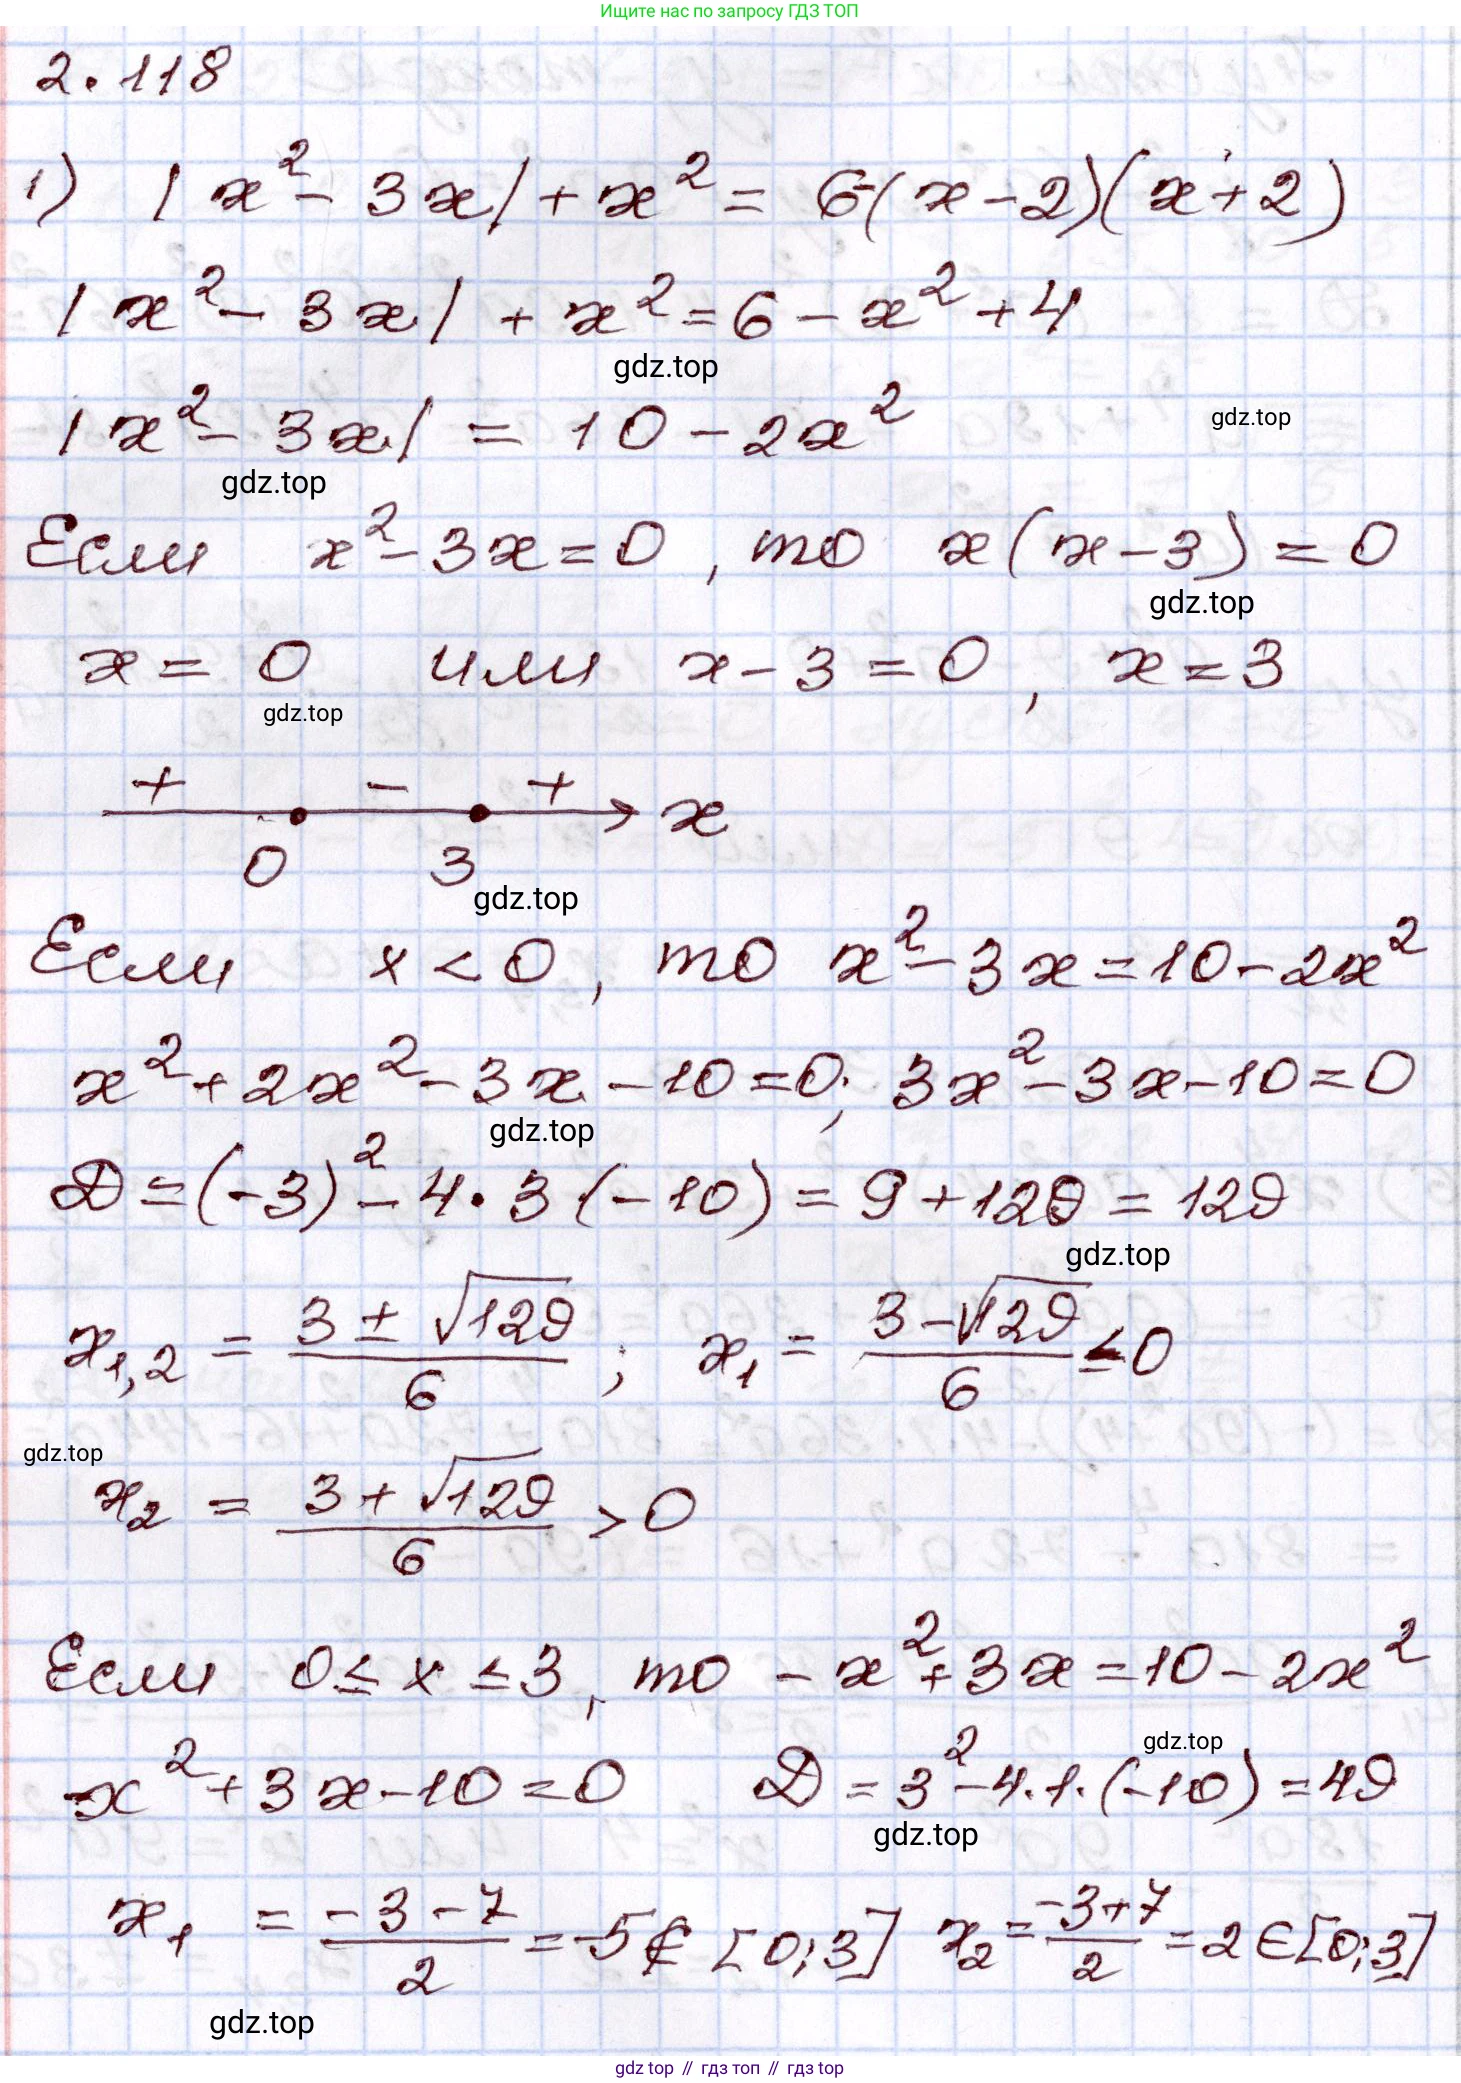 Ищите нас по запросу ГДЗ ТОП
2.118
1) |x² - 3x| + x² = 6-(x-2)(x+2)
|x² - 3x| + x² = 6 - x² + 4
gdz.top
|x² - 3x| = 10 - 2x²
gdz.top
gdz.top
Если x² - 3x = 0, то x(x-3) = 0
gdz.top
x = 0 или x - 3 = 0, x = 3
gdz.top
+ - + x
0 3
gdz.top
Если x < 0, то x² - 3x = 10 - 2x²
x² + 2x² - 3x - 10 = 0; 3x² - 3x - 10 = 0
gdz.top
D = (-3)² - 4·3·(-10) = 9 + 120 = 129
gdz.top
x₁,₂ = (3 ± √129)/6; x₁ = (3 - √129)/6 < 0
gdz.top
x₂ = (3 + √129)/6 > 0
Если 0 ≤ x ≤ 3, то - x² + 3x = 10 - 2x²
x² + 3x - 10 = 0 D = 3² - 4·1·(-10) = 49
gdz.top
gdz.top
x₁ = (-3-7)/2 = -5 ∉ [0;3] x₂ = (-3+7)/2 = 2 ∈ [0;3]
gdz.top
gdz top // гдз топ // гдз top